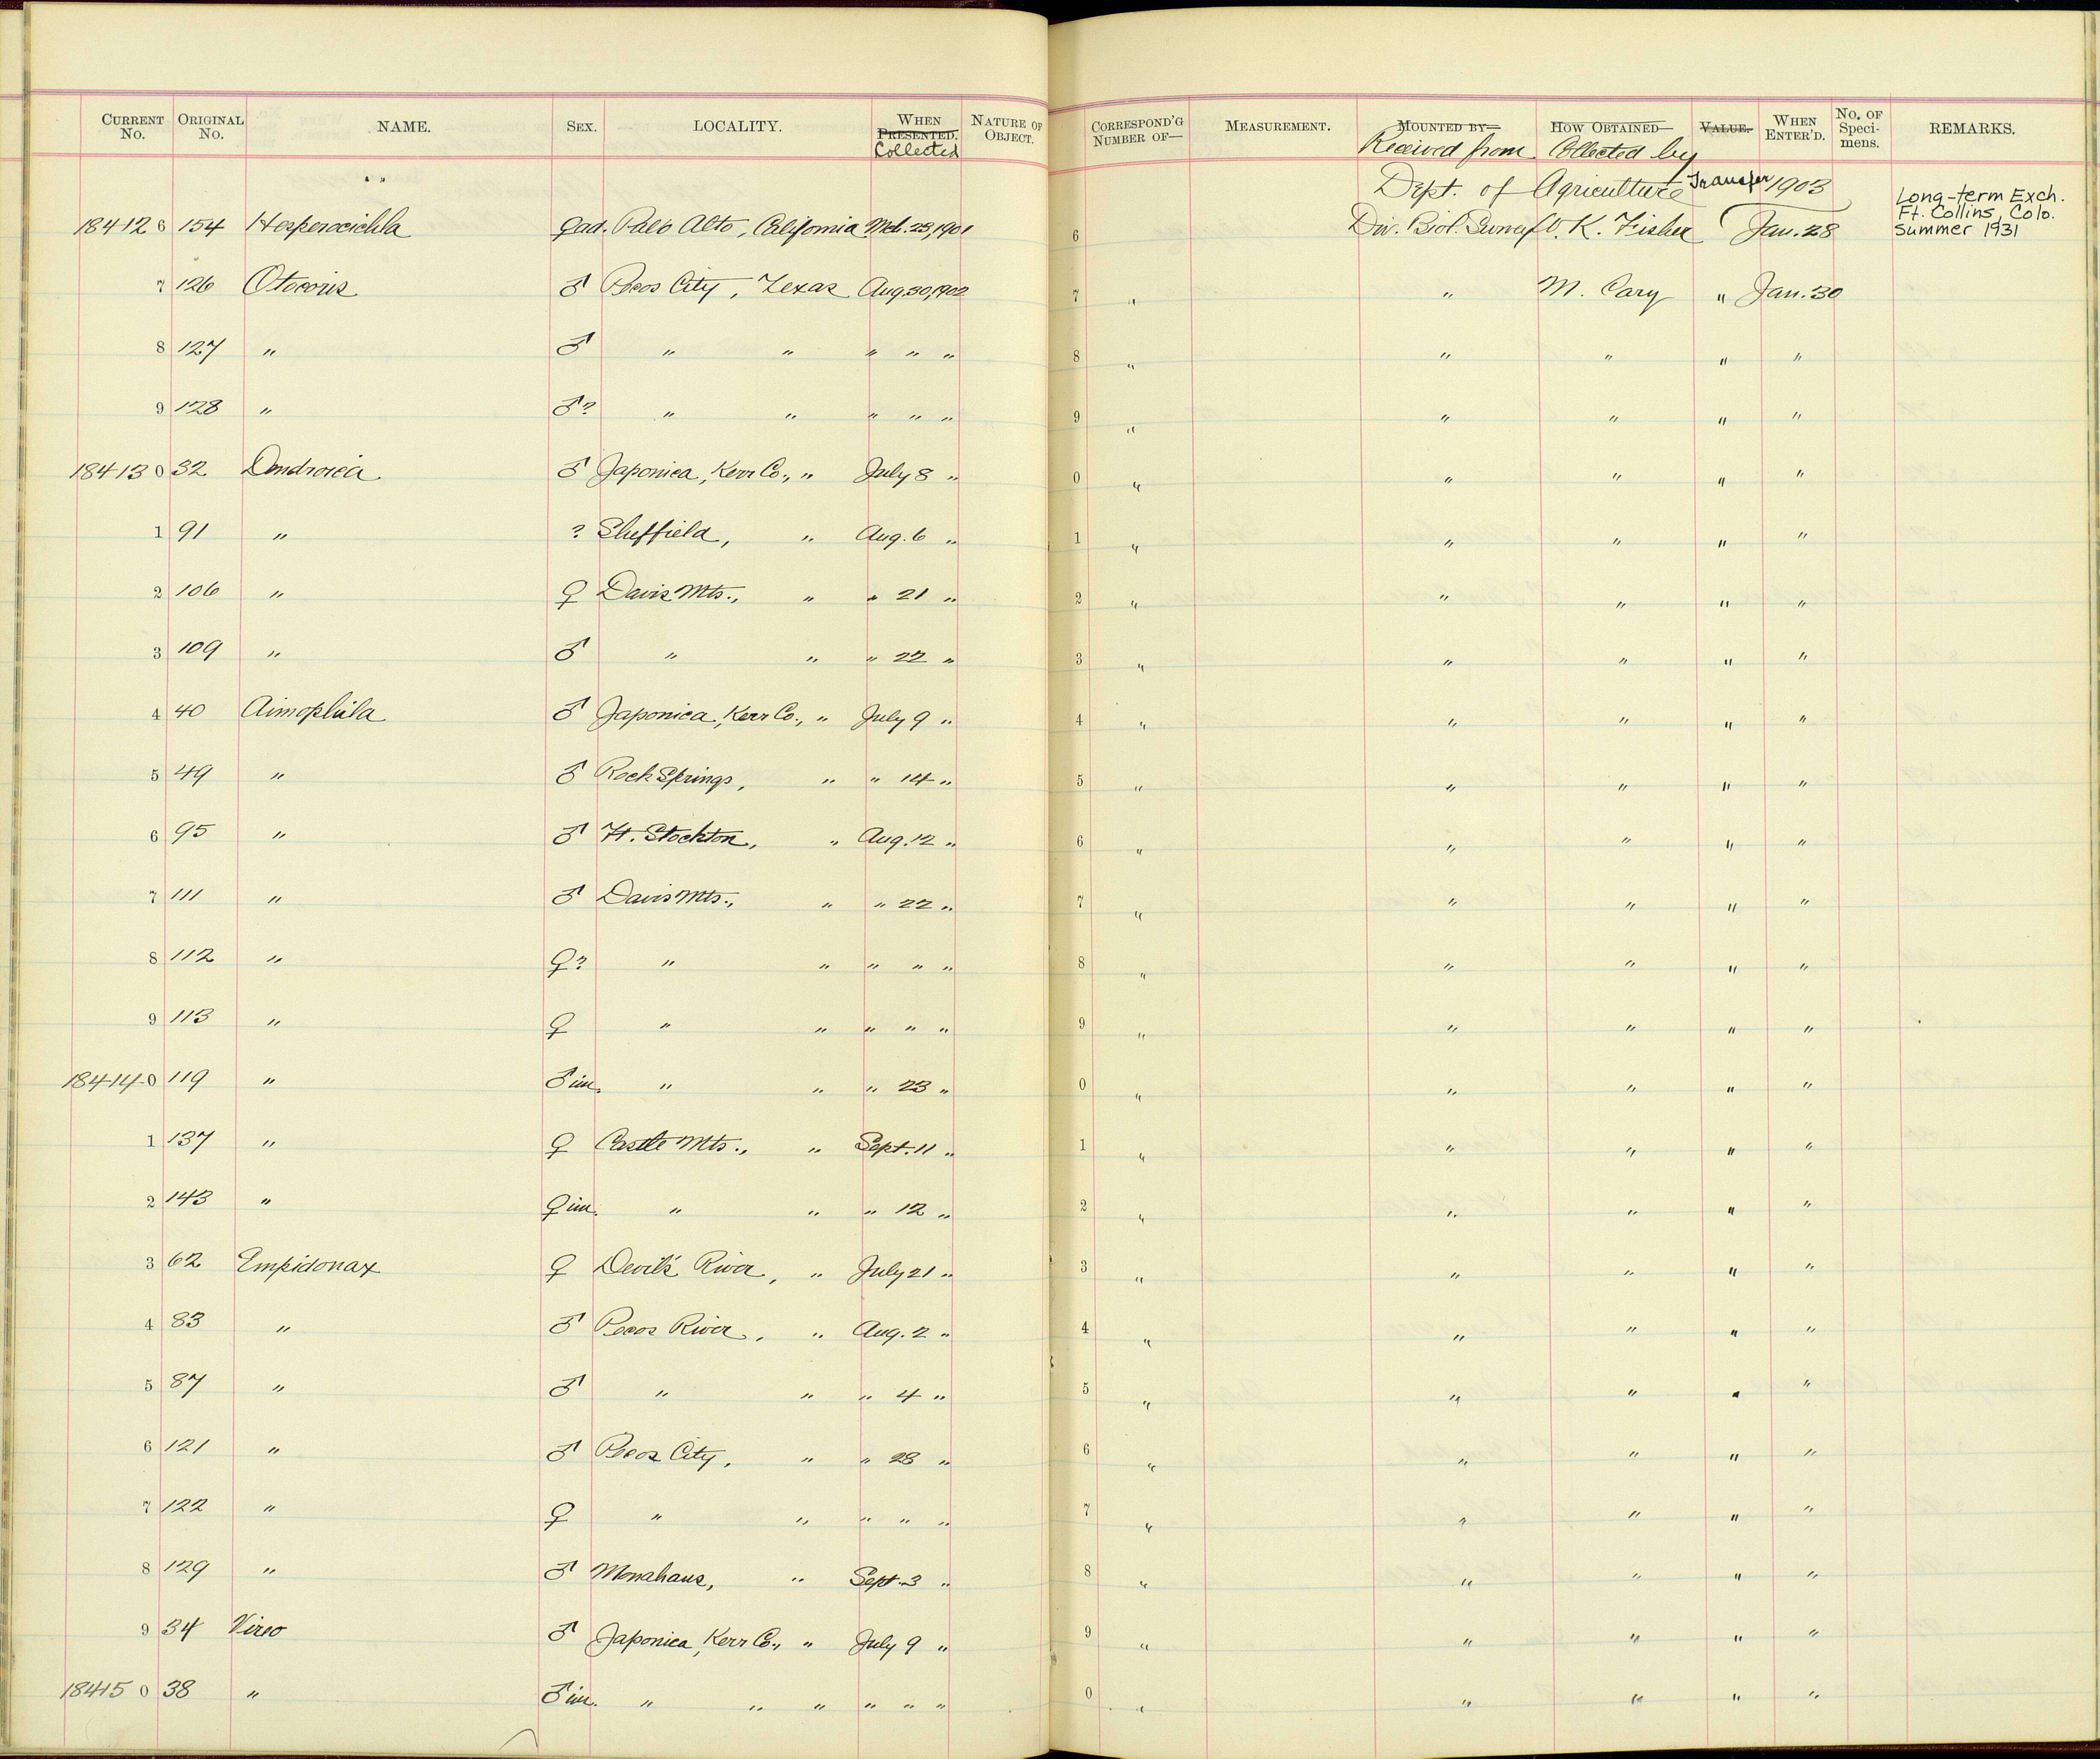 CURRENT No. ORIGINAL No. NAME. SEX. LOCALITY. WHEN PRESENTED. Collected NATURE OF OBJECT. CORRESPOND'G NUMBER OF— MEASUREMENT. MOUNTED BY— Received from HOW OBTAINED— Collected by VALUE. WHEN ENTER'D. No. OF Speci-mens. REMARKS.
" "
Dept. of Agriculture Transfer 1903
18412 6 154 Hesperocichla ♀ad. Palo Alto, California Mch. 23, 1901 6 Div. Biol. Survey W. K. Fisher Jan. 28 Long-term Exch. Ft. Collins, Colo. Summer 1931
7 126 Otocoris ♂ Pecos City, Texas Aug. 30, 1902 7 " " M. Cary " Jan. 30
8 127 " ♂ " " " " " 8 " " " " "
9 128 " ♂? " " " " " 9 " " " " "
18413 0 32 Dendroica ♂ Japonica, Kerr Co., " July 8 " 0 " " " " "
1 91 " ? Sheffield, " Aug. 6 " 1 " " " " "
2 106 " ♀ Davis Mts., " " 21 " 2 " " " " "
3 109 " ♂ " " " 22 " 3 " " " " "
4 40 Aimophila ♂ Japonica, Kerr Co., " July 9 " 4 " " " " "
5 49 " ♂ Rock Springs, " " 14 " 5 " " " " "
6 95 " ♂ Ft. Stockton, " Aug. 12 " 6 " " " " "
7 111 " ♂ Davis Mts., " " 22 " 7 " " " " "
8 112 " ♀? " " " " " 8 " " " " "
9 113 " ♀ " " " " " 9 " " " " "
18414 0 119 " ♂ im. " " " 23 " 0 " " " " "
1 137 " ♀ Castle Mts., " Sept. 11 " 1 " " " " "
2 143 " ♀ im. " " " 12 " 2 " " " " "
3 62 Empidonax ♀ Devil's River, " July 21 " 3 " " " " "
4 83 " ♂ Pecos River, " Aug. 2 " 4 " " " " "
5 87 " ♂ " " " 4 " 5 " " " " "
6 121 " ♂ Pecos City, " " 28 " 6 " " " " "
7 122 " ♀ " " " " " 7 " " " " "
8 129 " ♂ Monahans, " Sept. 3 " 8 " " " " "
9 34 Vireo ♂ Japonica, Kerr Co., " July 9 " 9 " " " " "
18415 0 38 " ♂ im. " " " " " " 0 " " " " "